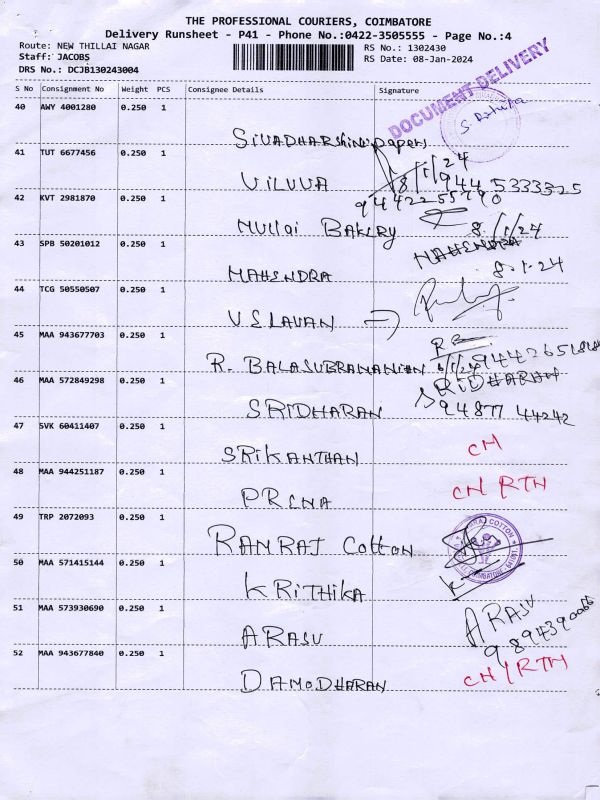 THE PROFESSIONAL COURIERS, COIMBATORE
Delivery Runsheet - P41 - Phone No.:0422-3505555 - Page No.:4
Route: NEW THILLAI NAGAR
RS No.: 1302430
Staff: JACOBS
RS Date: 08-Jan-2024
DRS No.: DCJB130243004
S No Consignment No Weight PCS Consignee Details Signature
DOCUMENT DELIVERY
40 AWY 4001280 0.250 1
SIVADHARshini papers
41 TUT 6677456 0.250 1
8/1/24
VILUVA 944 5333325
42 KVT 2981870 0.250 1
9442255790
Mullai BAKERY 8/1/24
43 SPB 50201012 0.250 1
MAHENDRA
MAHENDRA 8.1.24
44 TCG 50550507 0.250 1
VELAVAN
45 MAA 943677703 0.250 1
R. BALASUBRAMANIAN 8/1/24
46 MAA 572849298 0.250 1
SRIDHARAN
SRIDHARAN 94877 44242
47 SVK 60411407 0.250 1
SRIKANTHAN CH
48 MAA 944251187 0.250 1
PRENA CH/RTN
49 TRP 2072093 0.250 1
RAMRAJ Cotton
50 MAA 571415144 0.250 1
KRITHIKA
51 MAA 573930690 0.250 1
ARASU
ARASU
52 MAA 943677840 0.250 1
DAMODHARAN CH/RTN